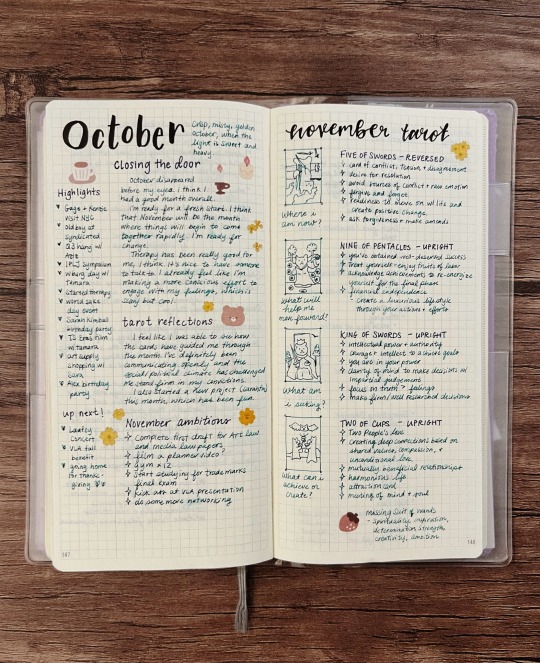 October
Crisp, misty, golden
october, when the
light is sweet and
heavy
closing the door
October disappeared
before my eyes. I think I
had a good month overall.
I'm ready for a fresh start. I think
that November will be the month
where things will begin to come
together rapidly. I'm ready for
change.
Therapy has been really good for
me, I think. It's nice to have someone
to talk to. I already feel like I'm
making a more conscious effort to
engage with my feelings, which is
scary but cool!
Highlights
Gage + Kenzie
visit NYC
Old boy at
Syndicated
Q3 hang w/
IPLJ Symposium
w/bang day w/
Tamara
Started therapy
World sake
day event
Sarah Kimball
birthday party
TS Eras Film
w/ Tamara
art supply
shopping w/
Sara
Alex birthday
party
tarot reflections
I feel like I was able to see how
the cards have guided me through
the month. I've definitely been
communicating openly and the
social/political climate has challenged
me stand firm in my convictions.
I also started a new project
this month, which had been fun.
up next!
Laufey
Concert
VLA fall
benefit
going home
for thanks-
giving
November ambitions
Complete first draft for Art Law
and media law papers
film a planner video?
gym x 12
Start studying for trademarks
final exam
Kick ass at VLA presentation
do some more networking
147
november tarot
Where i
am now?
FIVE OF SWORDS - REVERSED
card of conflict, tension + disagreement
desire for resolution
avoid sources of conflict + new emotion
forgive and forget
readiness to move on w/ life and
create positive change
ask forgiveness + make amends
What will
help me
move forward?
NINE OF PENTACLES - UPRIGHT
you've obtained well-deserved success
Treat yourself - enjoy fruits of labor
acknowledge achievements to re-energize
yourself for the final phase
financial independence
- create a luxurious lifestyle
through your actions + efforts
What am
i seeking?
KING OF SWORDS - UPRIGHT
intellectual power + authority
courage + intellect to achieve goals
you are in your power
clarity of mind to make decisions w/
impartial judgement
focus on truth > feelings
make firm/well researched decisions
What can i
achieve or
create?
TWO OF CUPS - UPRIGHT
Two People's love
creating deep connections based on
shared values, compassion, +
unconditional love
mutually beneficial relationships
harmonious life
attraction card
meeting of mind + soul
missing suit of wands
- spirituality, inspiration,
determination, strength,
creativity, ambition
148